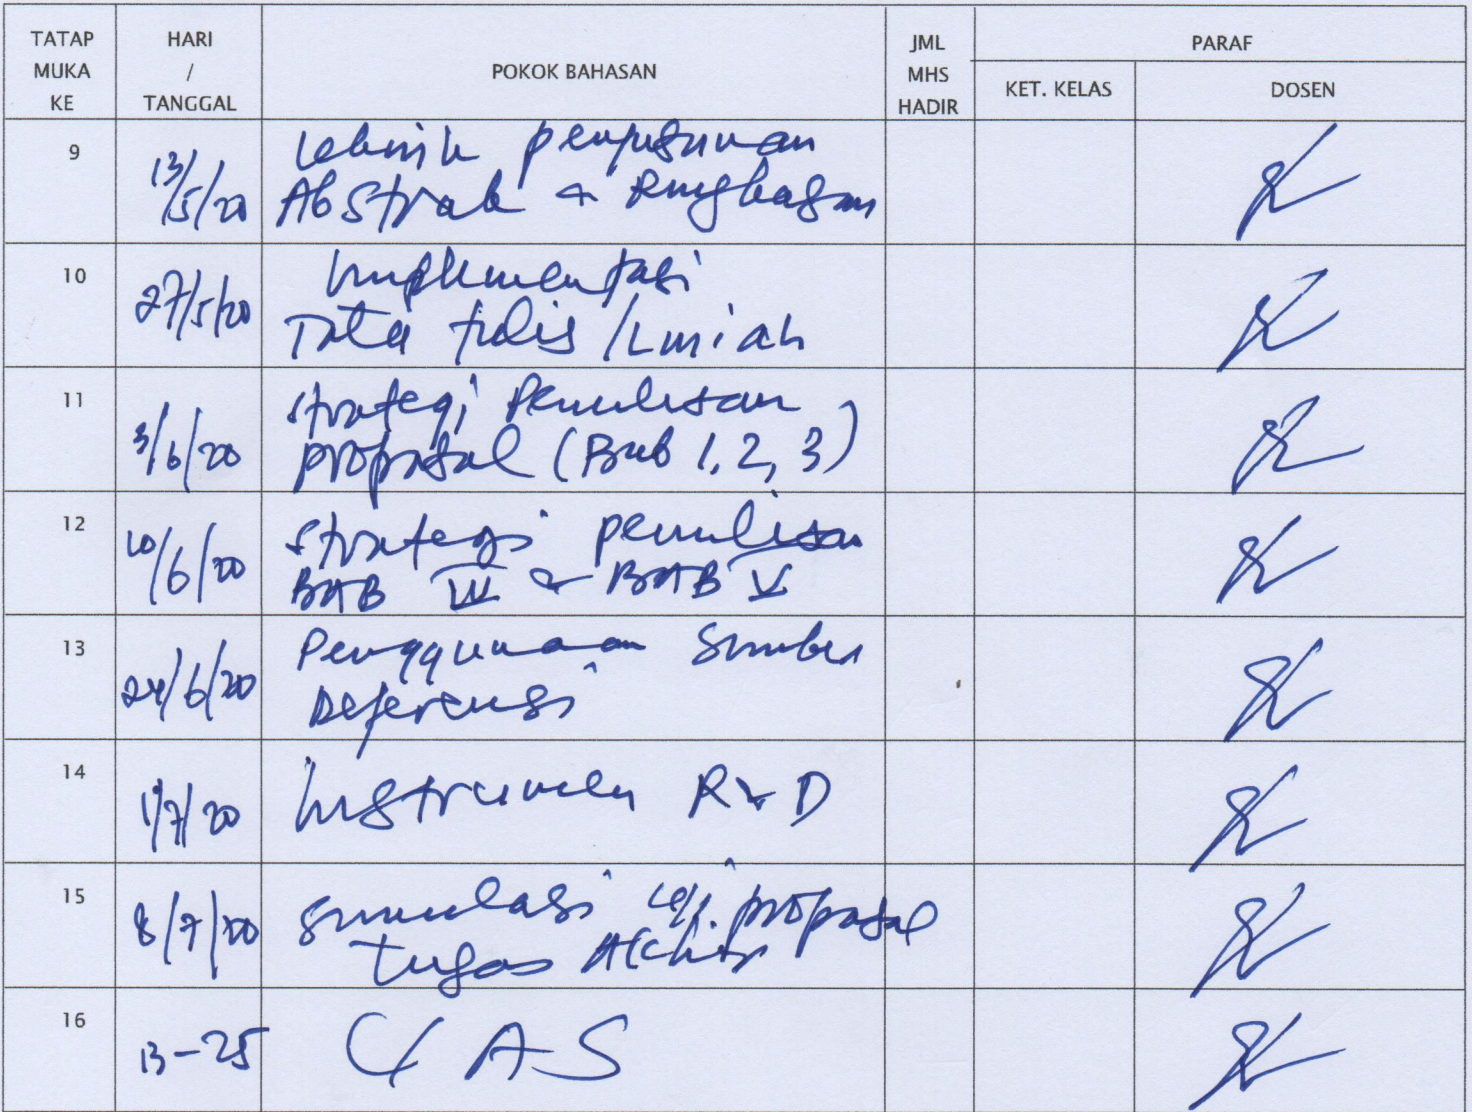 TATAP MUKA KE
HARI / TANGGAL
POKOK BAHASAN
JML MHS HADIR
PARAF
KET. KELAS
DOSEN
9
13/5/20
Tekinik penyusunan
Abstrak & Ringkasan
10
27/5/20
Implementasi
Tata tulis Ilmiah
11
3/6/20
Strategi Penulisan
proposal (Bab 1, 2, 3)
12
10/6/20
Strategi penulisan
BAB & BAB V
13
24/6/20
Penggunaan Sumber
Referensi
14
1/7/20
Instrumen R & D
15
8/7/20
Simulasi uji proposal
Tugas Akhir
16
13-25
UAS